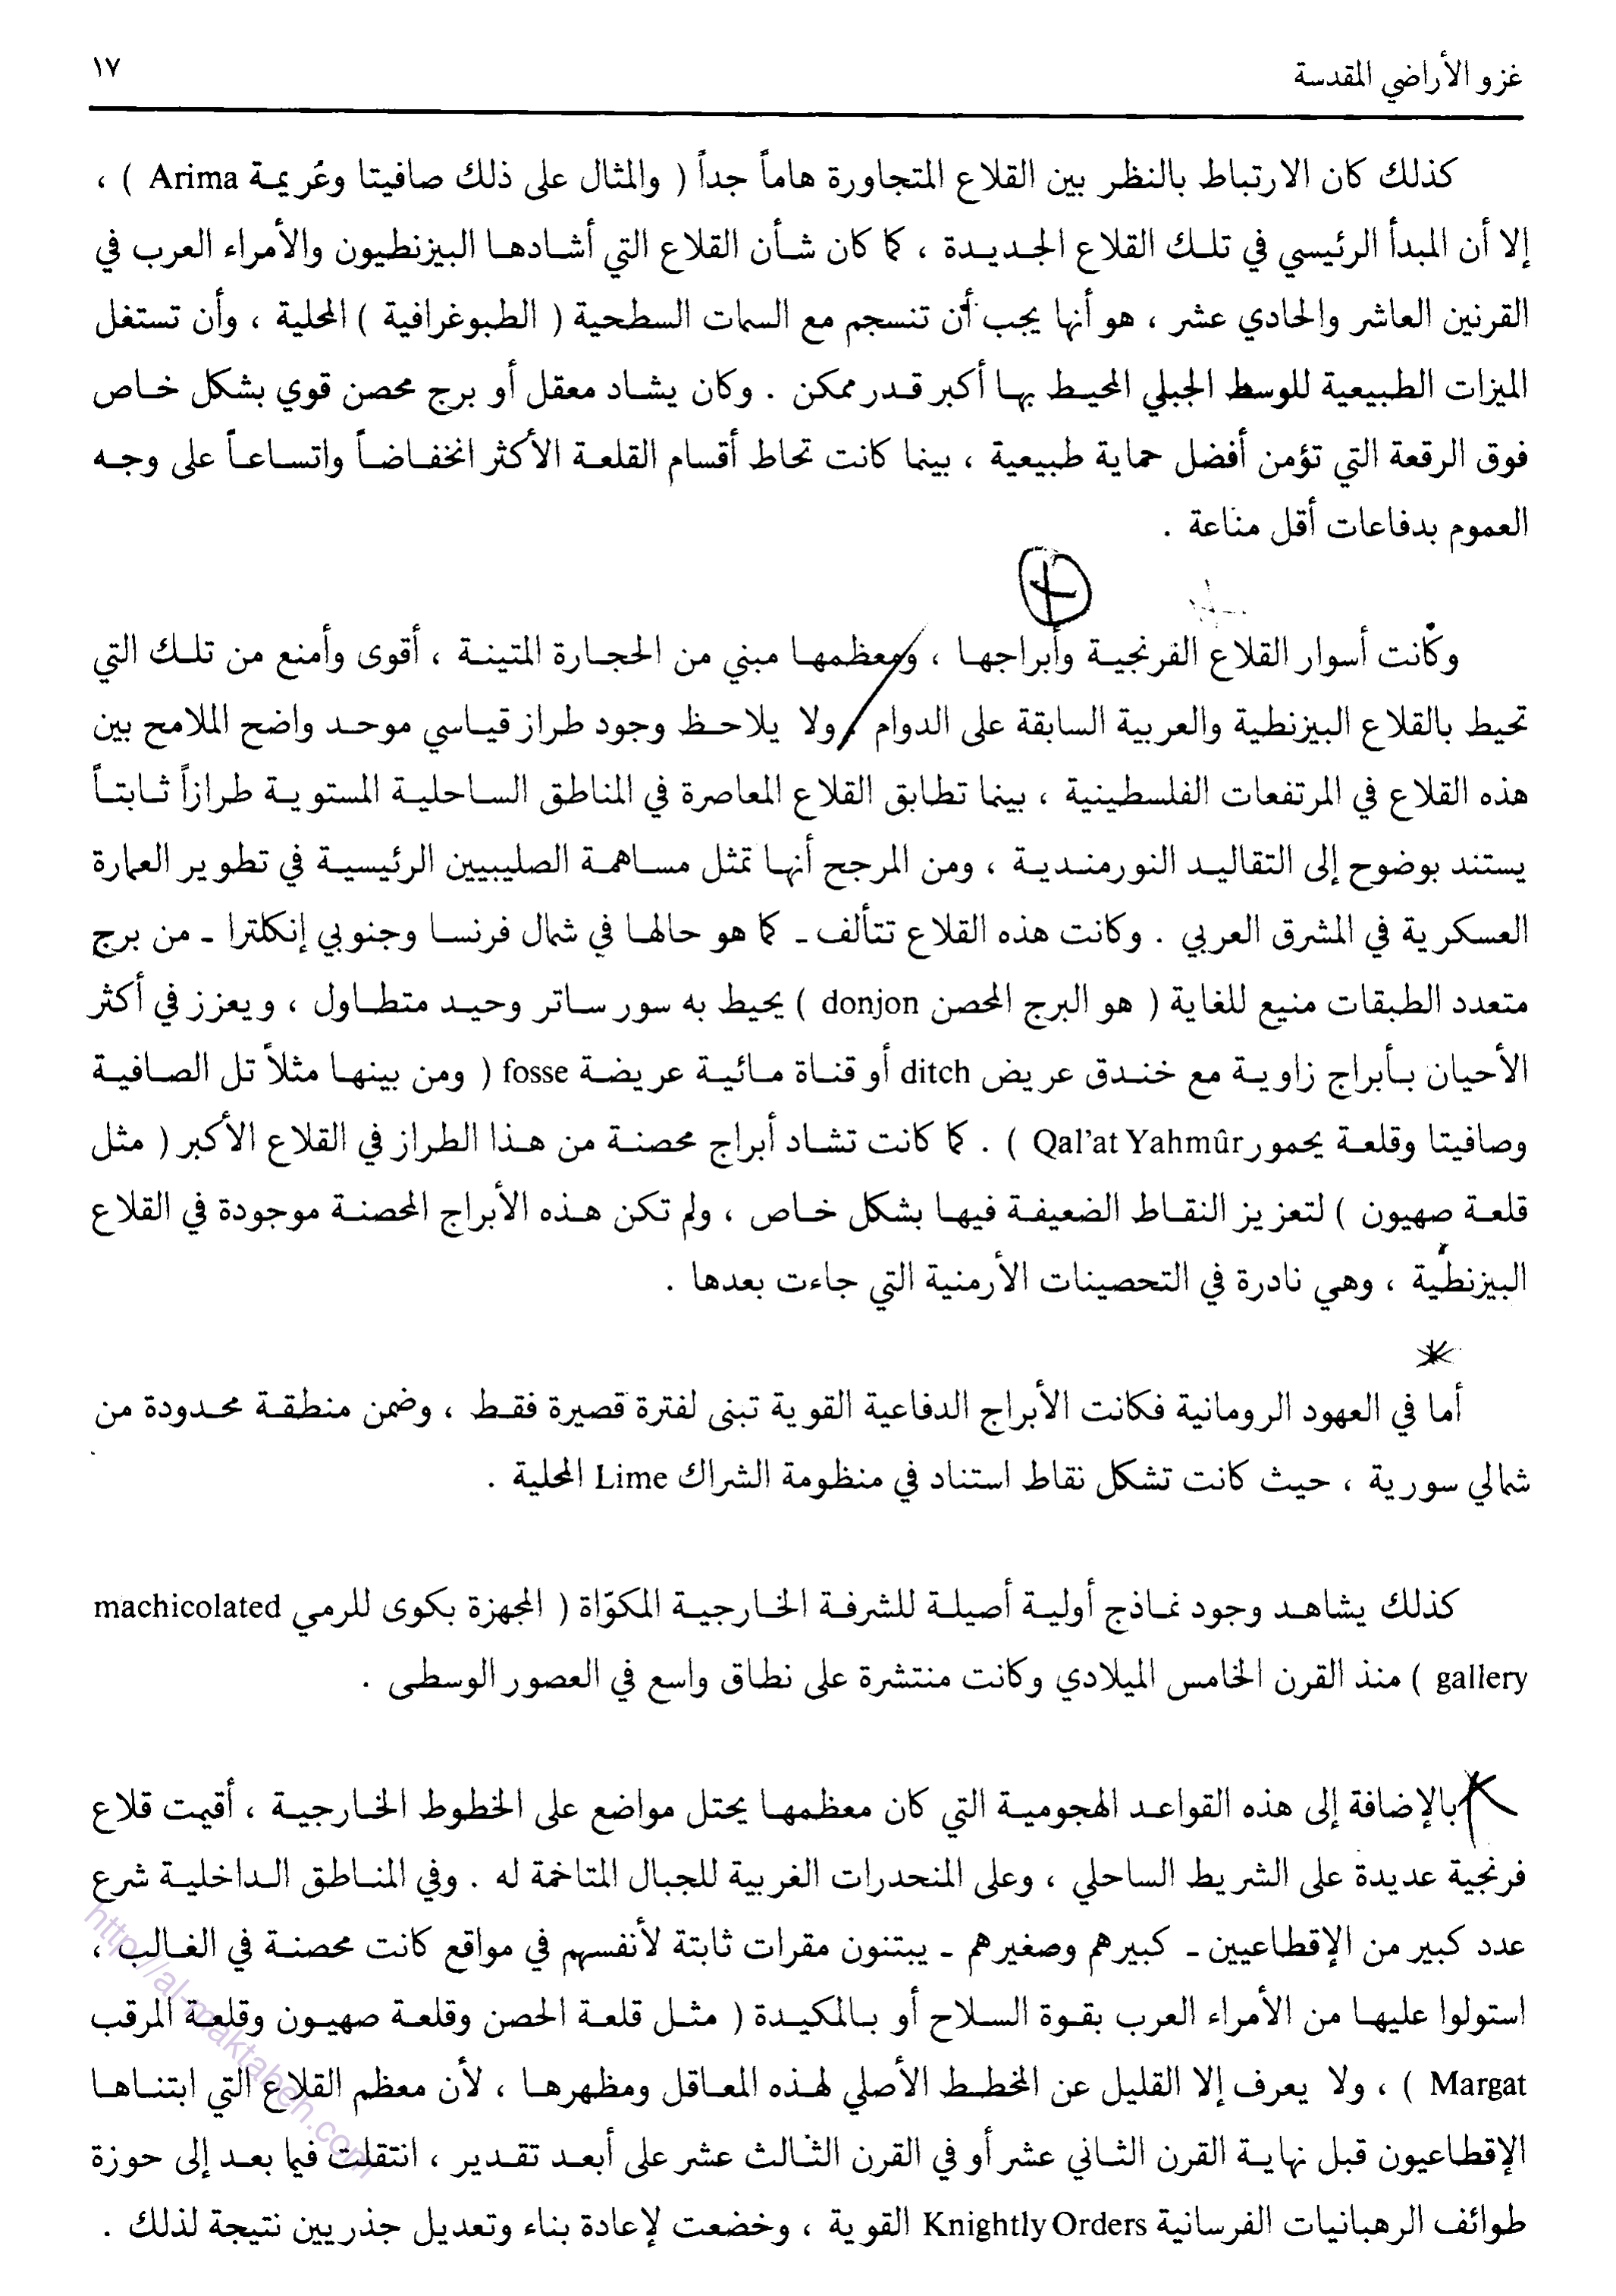 غزو الأراضي المقدسة
١٧
كذلك كان الارتباط بالنظر بين القلاع المتجاورة هاماً جداً ( والمثال على ذلك صافيتا وعُريمة Arima ) ،
إلا أن المبدأ الرئيسي في تلك القلاع الجديدة ، كما كان شأن القلاع التي أشادها البيزنطيون والأمراء العرب في
القرنين العاشر والحادي عشر ، هو أنها يجب أن تنسجم مع السمات السطحية ( الطبوغرافية ) المحلية ، وأن تستغل
الميزات الطبيعية للوسط الجبلي المحيط بها أكبر قدر ممكن . وكان يشاد معقل أو برج محصن قوي بشكل خاص
فوق الرقعة التي تؤمن أفضل حماية طبيعية ، بينما كانت تحاط أقسام القلعة الأكثر انخفاضاً واتساعاً على وجه
العموم بدفاعات أقل مناعة .
وكانت أسوار القلاع الفرنجية وأبراجها ، ومعظمها مبني من الحجارة المتينة ، أقوى وأمنع من تلك التي
تحيط بالقلاع البيزنطية والعربية السابقة على الدوام ، ولا يلاحظ وجود طراز قياسي موحد واضح الملامح بين
هذه القلاع في المرتفعات الفلسطينية ، بينما تطابق القلاع المعاصرة في المناطق الساحلية المستوية طرازاً ثابتاً
يستند بوضوح إلى التقاليد النورمندية ، ومن المرجح أنها تمثل مساهمة الصليبيين الرئيسية في تطوير العمارة
العسكرية في المشرق العربي . وكانت هذه القلاع تتألف ـ كما هو حالها في شمال فرنسا وجنوبي إنكلترا ـ من برج
متعدد الطبقات منيع للغاية ( هو البرج المحصن donjon ) يحيط به سور ساتر وحيد متطاول ، ويعزز في أكثر
الأحيان بأبراج زاوية مع خندق عريض ditch أو قناة مائية عريضة fosse ( ومن بينها مثلاً تل الصافية
وصافيتا وقلعة يحمور Qal'at Yahmûr ) . كما كانت تشاد أبراج محصنة من هذا الطراز في القلاع الأكبر ( مثل
قلعة صهيون ) لتعزيز النقاط الضعيفة فيها بشكل خاص ، ولم تكن هذه الأبراج المحصنة موجودة في القلاع
البيزنطية ، وهي نادرة في التحصينات الأرمنية التي جاءت بعدها .
أما في العهود الرومانية فكانت الأبراج الدفاعية القوية تبنى لفترة قصيرة فقط ، وضمن منطقة محدودة من
شمالي سورية ، حيث كانت تشكل نقاط استناد في منظومة الشراك Lime المحلية .
كذلك يشاهد وجود نماذج أولية أصيلة للشرفة الخارجية المكوّاة ( المجهزة بكوى للرمي machicolated
gallery ) منذ القرن الخامس الميلادي وكانت منتشرة على نطاق واسع في العصور الوسطى .
بالإضافة إلى هذه القواعد الهجومية التي كان معظمها يحتل مواضع على الخطوط الخارجية ، أقيمت قلاع
فرنجية عديدة على الشريط الساحلي ، وعلى المنحدرات الغربية للجبال المتاخمة له . وفي المناطق الداخلية شرع
عدد كبير من الإقطاعيين ـ كبيرهم وصغيرهم ـ يبتنون مقرات ثابتة لأنفسهم في مواقع كانت محصنة في الغالب ،
استولوا عليها من الأمراء العرب بقوة السلاح أو بالمكيدة ( مثل قلعة الحصن وقلعة صهيون وقلعة المرقب
Margat ) ، ولا يعرف إلا القليل عن المخطط الأصلي لهذه المعاقل ومظهرها ، لأن معظم القلاع التي ابتناها
الإقطاعيون قبل نهاية القرن الثاني عشر أو في القرن الثالث عشر على أبعد تقدير ، انتقلت فيما بعد إلى حوزة
طوائف الرهبانيات الفرسانية Knightly Orders القوية ، وخضعت لإعادة بناء وتعديل جذريين نتيجة لذلك .
http://al-maktabeh.com